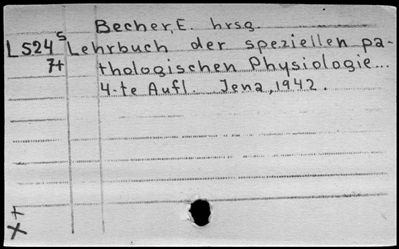 Becher, E. hrsg.
L524 s Lehrbuch der speziellen pa-
7+ thologischen Physiologie...
4-te Aufl. Jena, 1942.
+
X